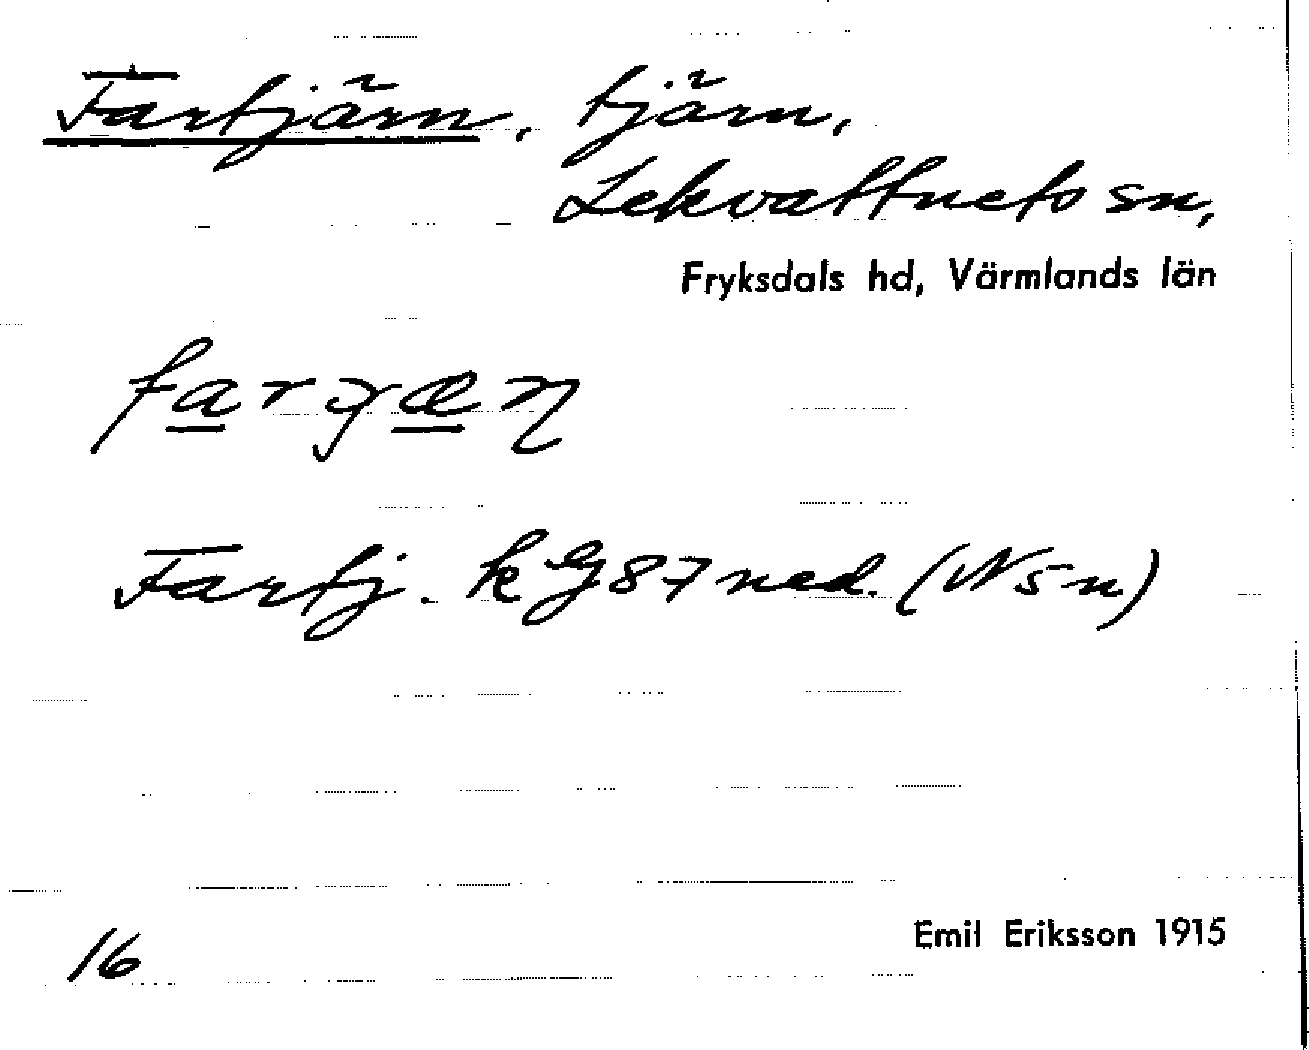 Fartjärn, tjärn,
Lekvattnets sn,
Fryksdals hd, Värmlands län
Fartj. kG 87 ned. (N sn)
Emil Eriksson 1915
16